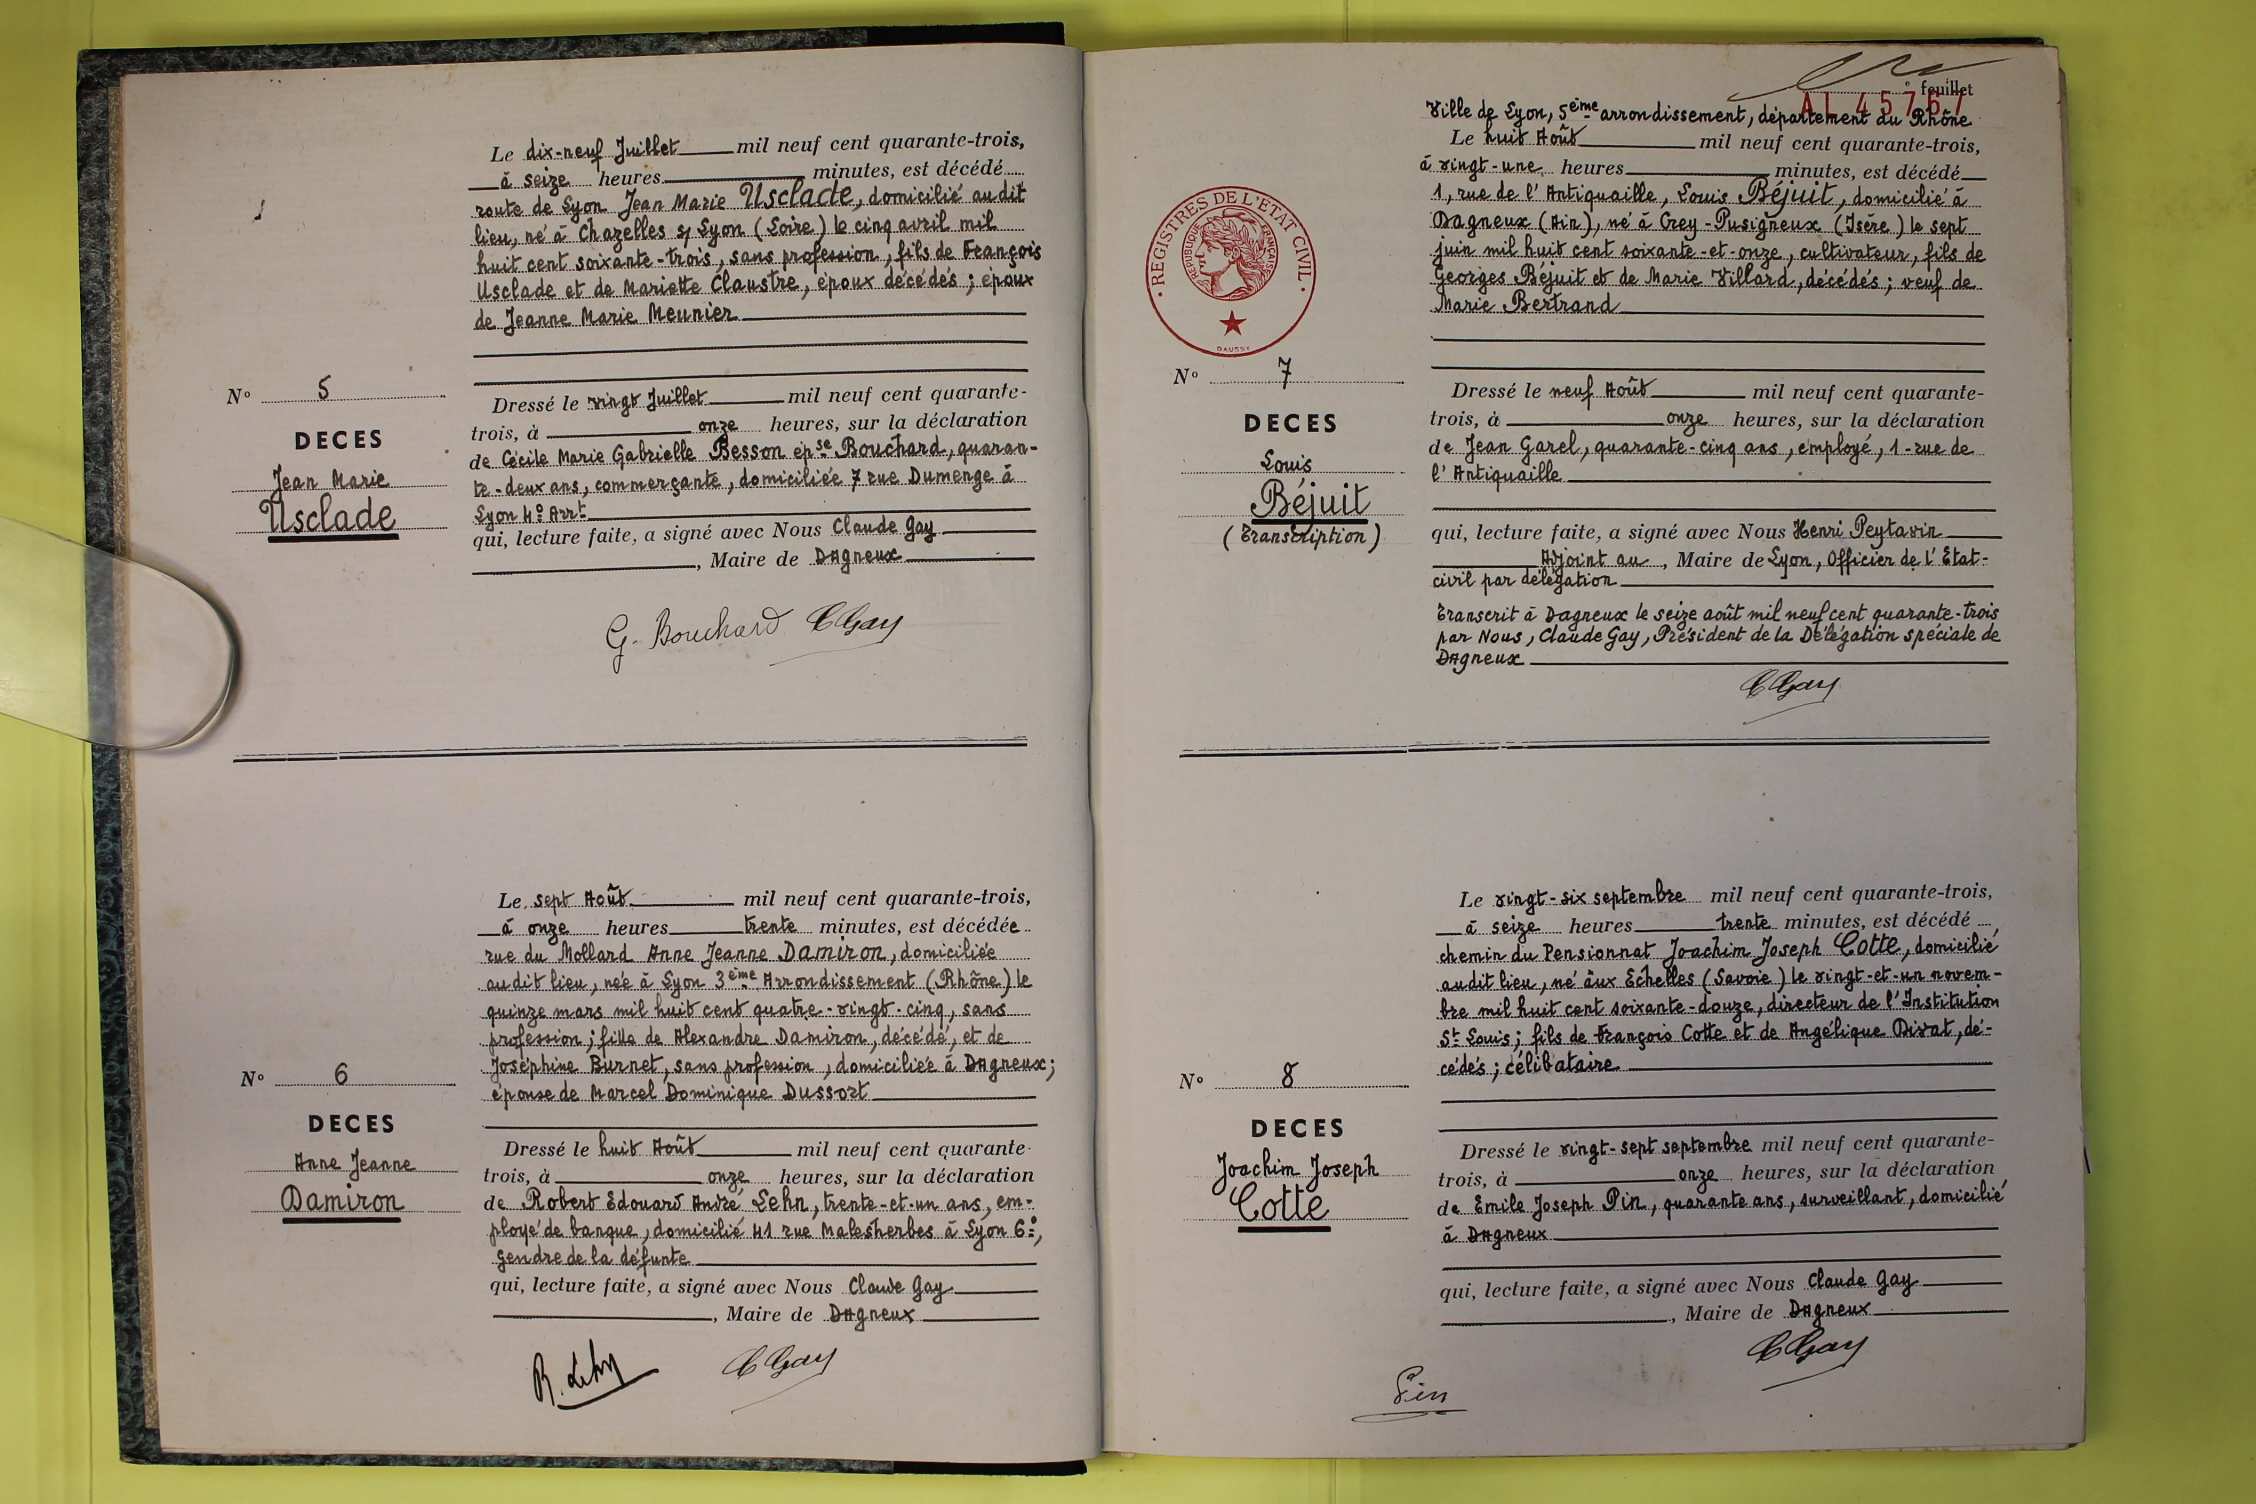 Le dix-neuf Juillet mil neuf cent quarante-trois,
à seize heures minutes, est décédé
route de Lyon Jean Marie Usclade, domicilié audit
lieu, né à Chazelles s/ Lyon (Loire) le cinq avril mil
huit cent soixante-trois, sans profession, fils de François
Usclade et de Mariette Claustre, époux décédés ; époux
de Jeanne Marie Meunier
N° 5
DECES
Jean Marie
Usclade
Dressé le vingt Juillet mil neuf cent quarante-
trois, à onze heures, sur la déclaration
de Cécile Marie Gabrielle Besson épse Bouchard, quaran-
te-deux ans, commerçante, domiciliée 7 rue Dumenge à
Lyon 4° Arrt
qui, lecture faite, a signé avec Nous Claude Gay
, Maire de Dagneux
G. Bouchard CGay
Le sept Août mil neuf cent quarante-trois,
à onze heures trente minutes, est décédée
rue du Mollard Anne Jeanne Damiron, domiciliée
audit lieu, née à Lyon 3ème Arrondissement (Rhône) le
quinze mars mil huit cent quatre-vingt-cinq, sans
profession ; fille de Alexandre Damiron, décédé, et de
Joséphine Burnet, sans profession, domiciliée à Dagneux ;
épouse de Marcel Dominique Dussort
N° 6
DECES
Anne Jeanne
Damiron
Dressé le huit Août mil neuf cent quarante-
trois, à onze heures, sur la déclaration
de Robert Edouard André Lehn, trente-et-un ans, em-
ployé de banque, domicilié 41 rue Malesherbes à Lyon 6°,
gendre de la défunte
qui, lecture faite, a signé avec Nous Claude Gay
, Maire de Dagneux
R. Lehn CGay
° feuillet
AL 45767
Ville de Lyon, 5ème arrondissement, département du Rhône
Le huit Août mil neuf cent quarante-trois,
à vingt-une heures minutes, est décédé
1, rue de l'Antiquaille, Louis Béjuit, domicilié à
Dagneux (Ain), né à Crey-Pusigneux (Isère) le sept
juin mil huit cent soixante-et-onze, cultivateur, fils de
Georges Béjuit et de Marie Villard, décédés ; veuf de
Marie Bertrand
REGISTRES DE L'ETAT CIVIL
REPUBLIQUE FRANÇAISE
DAUSSY
N° 7
DECES
Louis
Béjuit
(Transcription)
Dressé le neuf Août mil neuf cent quarante-
trois, à onze heures, sur la déclaration
de Jean Garel, quarante-cinq ans, employé, 1-rue de
l'Antiquaille
qui, lecture faite, a signé avec Nous Henri Peytavin
Adjoint au , Maire de Lyon, Officier de l'Etat-
civil par délégation
Transcrit à Dagneux le seize août mil neuf cent quarante-trois
par Nous, Claude Gay, Président de la Délégation spéciale de
Dagneux
CGay
Le vingt-six septembre mil neuf cent quarante-trois,
à seize heures trente minutes, est décédé
chemin du Pensionnat Joachim Joseph Cotte, domicilié
audit lieu, né aux Echelles (Savoie) le vingt-et-un novem-
bre mil huit cent soixante-douze, directeur de l'Institution
St Louis ; fils de François Cotte et de Angélique Divat, dé-
cédés ; célibataire
N° 8
DECES
Joachim Joseph
Cotte
Dressé le vingt-sept septembre mil neuf cent quarante-
trois, à onze heures, sur la déclaration
de Emile Joseph Pin, quarante ans, surveillant, domicilié
à Dagneux
qui, lecture faite, a signé avec Nous Claude Gay
, Maire de Dagneux
CGay
Pin